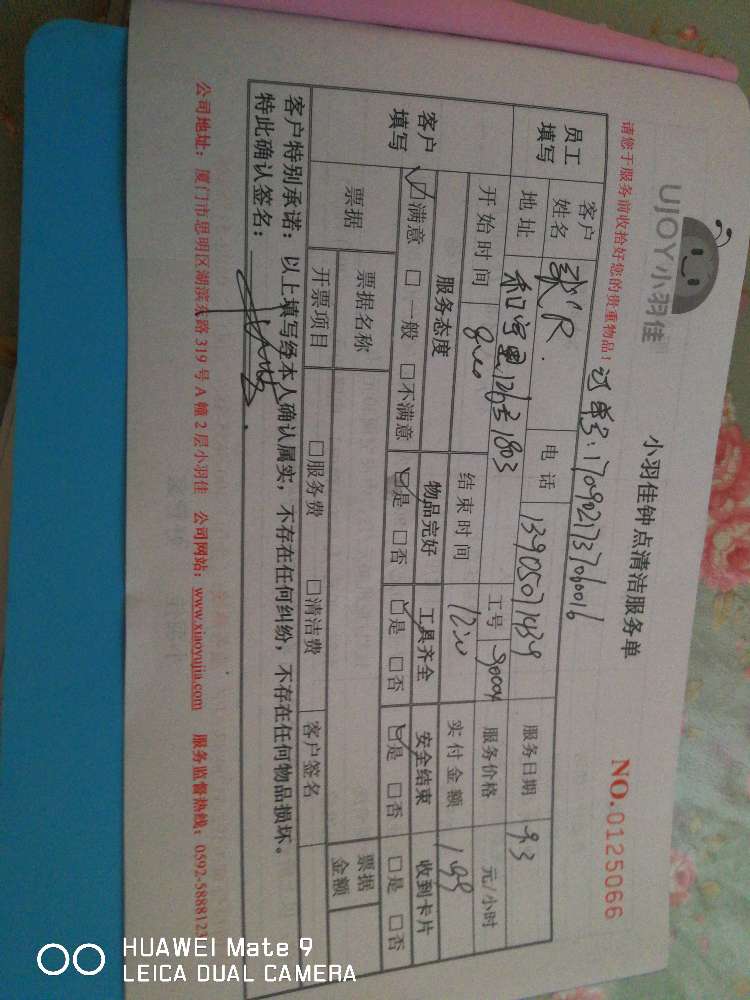 UJOY小羽佳
小羽佳钟点清洁服务单
NO.0125066
请您于服务前收拾好您的贵重物品！
订单号:1709021737060016
员工填写
客户姓名
电话 13905071439
服务日期 9.3
地址 和宁里126号1803
工号
服务价格 元/小时
开始时间
结束时间 12:00
实付金额 199
客户填写
服务态度 物品完好 工具齐全 安全结束 收到卡片
☑满意 □一般 □不满意 ☑是 □否 ☑是 □否 ☑是 □否 □是 □否
票据
票据名称
票据金额
开票项目 □服务费 □清洁费 客户签名
客户特别承诺：以上填写经本人确认属实，不存在任何纠纷，不存在任何物品损坏。
特此确认签名：
公司地址：厦门市思明区湖滨东路319号A幢2层小羽佳 公司网站：www.xiaoyujia.com 服务监督热线：0592-5888123
HUAWEI Mate 9
LEICA DUAL CAMERA